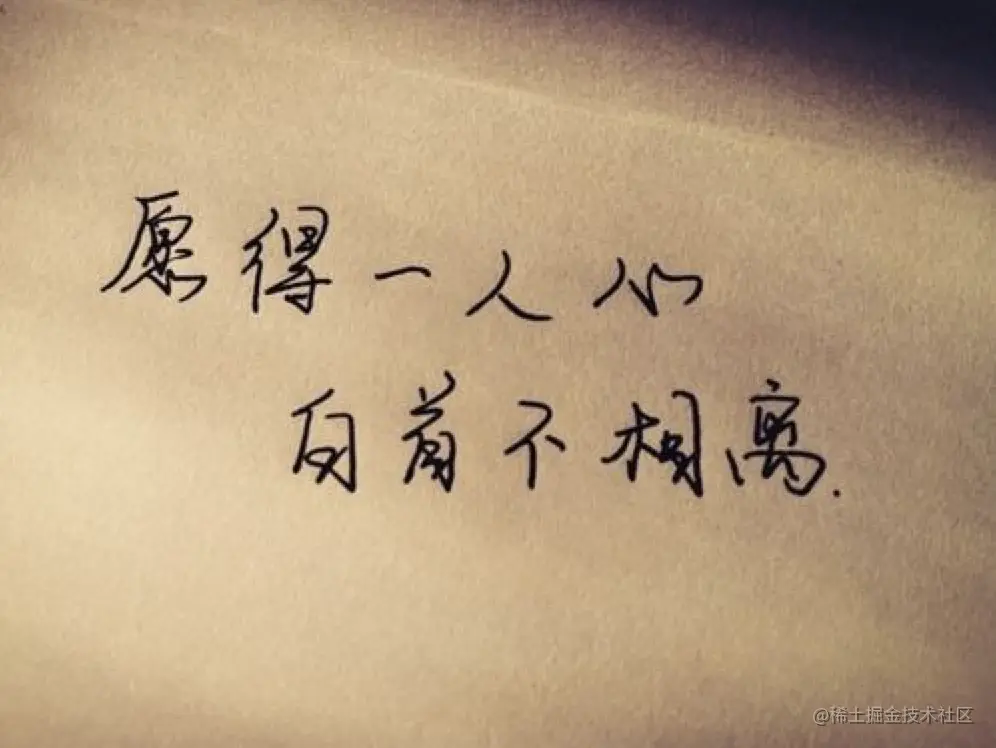 愿得一人心
白首不相离.
@稀土掘金技术社区